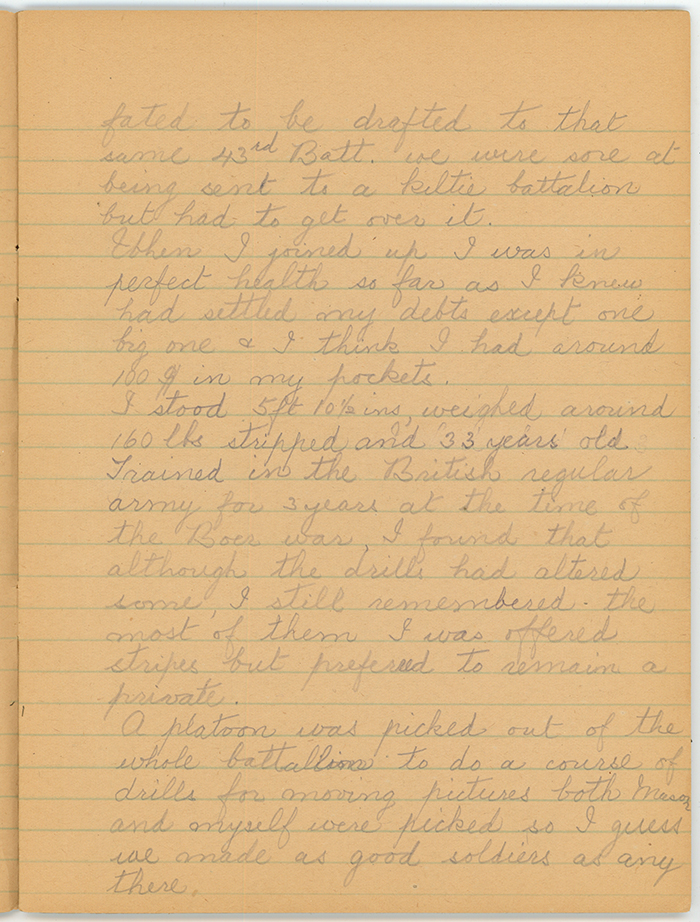 fated to be drafted to that
same 43rd Batt. we were sore at
being sent to a kiltie battalion
but had to get over it.
When I joined up I was in
perfect health so far as I knew
had settled my debts except one
big one & I think I had around
100 $ in my pockets.
I stood 5ft 10½ ins, weighed around
160 lbs stripped and 33 years old
Trained in the British regular
army for 3 years at the time of
the Boer war, I found that
although the drills had altered
some, I still remembered the
most of them I was offered
stripes but prefered to remain a
private.
A platoon was picked out of the
whole battallion to do a course of
drills for moving pictures both Mason
and myself were picked so I guess
we made as good soldiers as any
there.